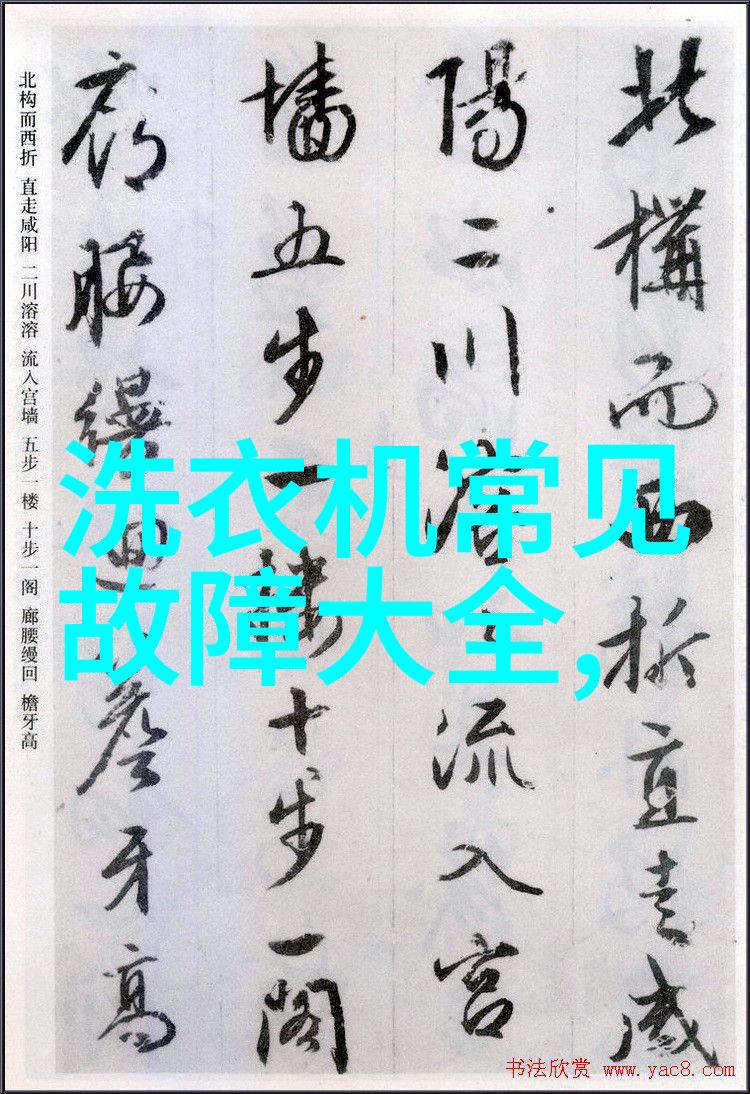 北構而西折直走咸
陽二川溶々流入宫
墻五步一樓十步一閣
廊腰縵迴簷牙高
北构而西折 直走咸阳 二川溶溶 流入宫墙 五步一楼 十步一阁 廊腰缦回 檐牙高
洗衣机常见
故障大全,
书法欣赏 www.yac8.com